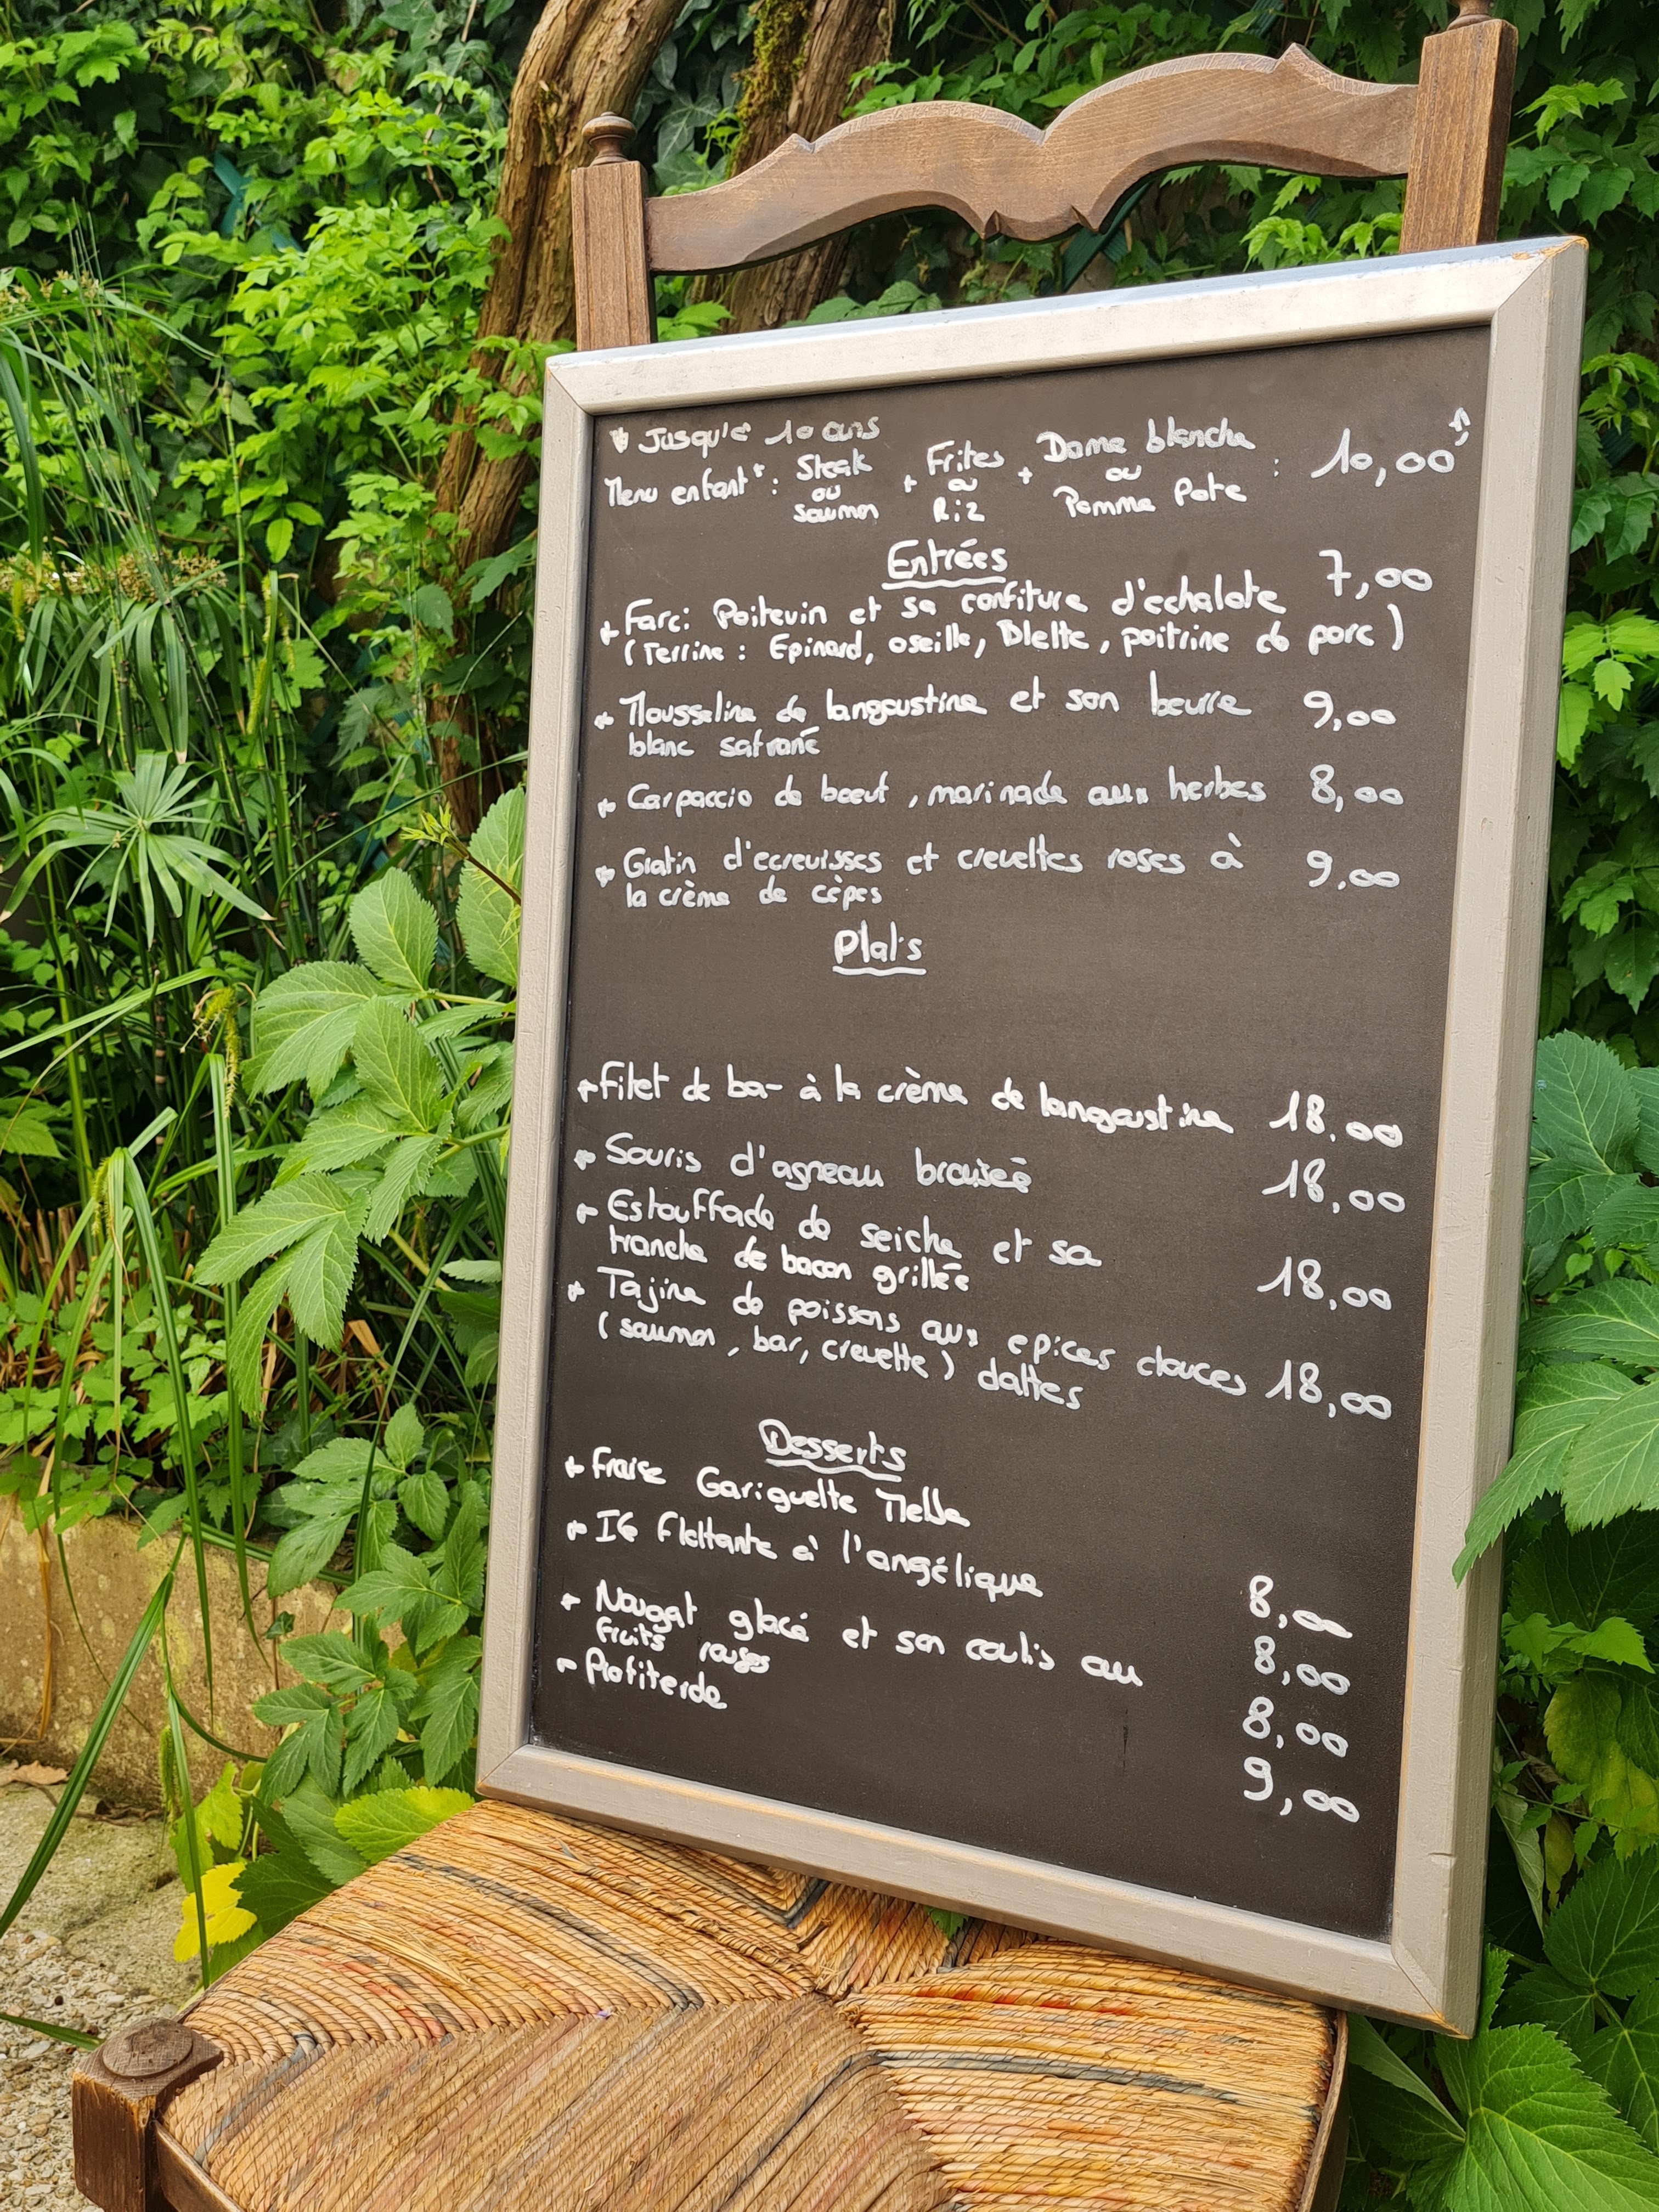 * Jusqu'a 10 ans
Menu enfant* : Steak ou saumon + Frites ou Riz + Dame blanche ou Pomme Pote : 10,00
Entrées
Farci Poitevin et sa confiture d'echalote 7,00
(Terrine : Epinard, oseille, Blette, poitrine de porc)
Mousseline de langoustine et son beurre 9,00
blanc safrané
Carpaccio de boeuf, marinade aux herbes 8,00
Gratin d'ecrevisses et crevettes roses à 9,00
la crème de cèpes
Plats
Filet de bar à la crème de langoustine 18.00
Souris d'agneau braisée 18,00
Estouffade de seiche et sa
tranche de bacon grillée 18,00
Tajine de poissons aux epices douces 18,00
(saumon, bar, crevette) dattes
Desserts
Fraise Gariguette Melba 8,00
Ile flottante à l'angélique 8,00
Nougat glacé et son coulis au 8,00
fruits rouges
Profiterole 9,00